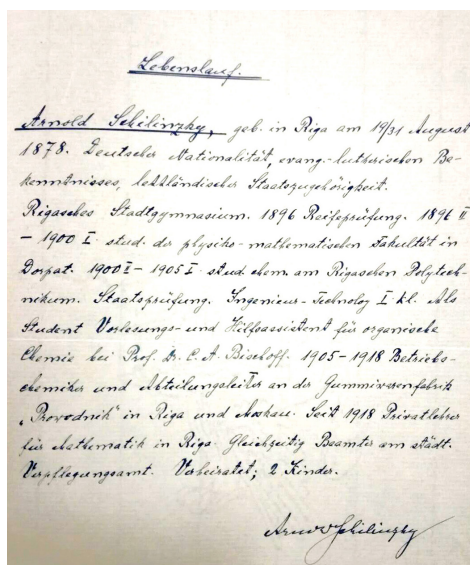 Lebenslauf.
Arnold Schilinzky, geb. in Riga am 19/31 August
1878. Deutscher Nationalität, evang.-lutherischen Be-
kenntnisses, lettländischer Staatszugehörigkeit.
Rigasches Stadtgymnasium. 1896 Reifeprüfung. 1896 II
– 1900 I. stud. der physiko-mathematischen Fakultät in
Dorpat. 1900 I – 1905 I. stud. chem. am Rigaschen Polytech-
nikum. Staatsprüfung. Ingenieur-Technolog I. kl. Als
Student Vorlesungs- und Hilfsassistent für organische
Chemie bei Prof. Dr. C. A. Bischoff. 1905 – 1918 Betriebs-
chemiker und Abteilungsleiter an der Gummiwarenfabrik
„Prowodnik" in Riga und Moskau. Seit 1918 Privatlehrer
für Mathematik in Riga. Gleichzeitig Beamter am städt.
Verpflegungsamt. Verheiratet; 2 Kinder.
Arnold Schilinzky